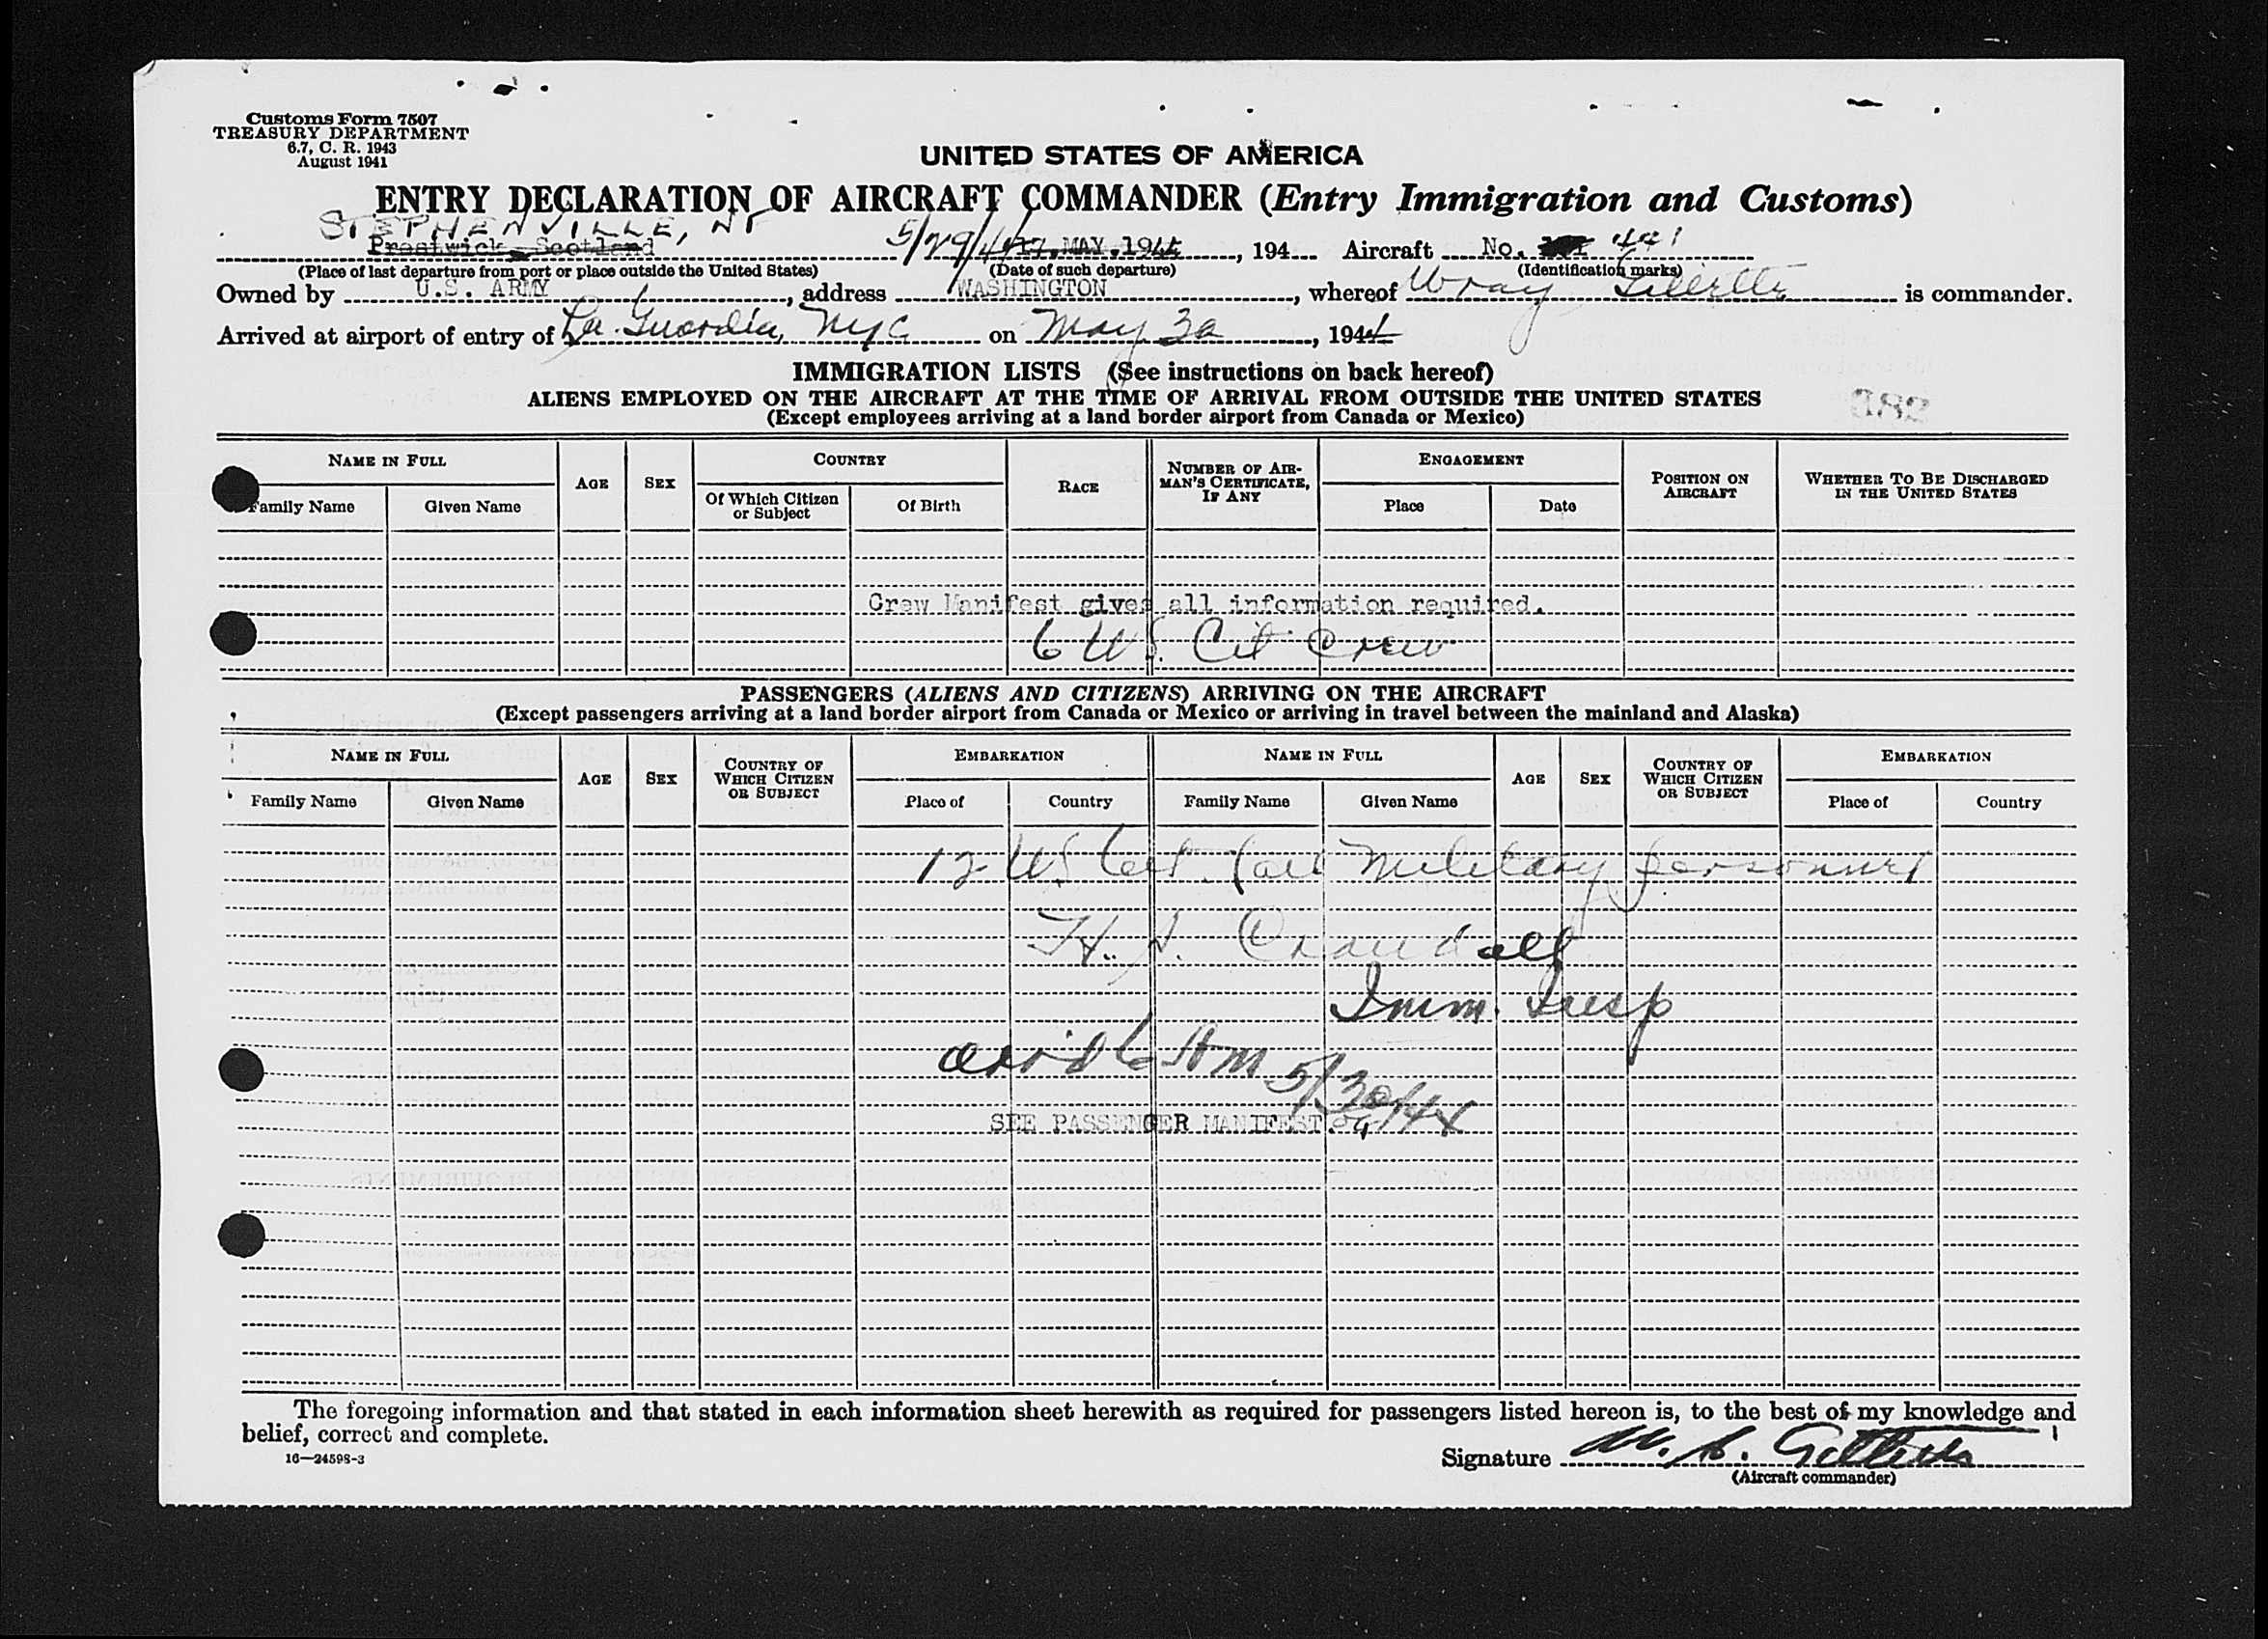 Customs Form 7507
TREASURY DEPARTMENT
6.7, C. R. 1943
August 1941
UNITED STATES OF AMERICA
ENTRY DECLARATION OF AIRCRAFT COMMANDER (Entry Immigration and Customs)
STEPHENVILLE, NF
Prestwick, Scotland 5/29/44 17 MAY 1944, 194 Aircraft No. 441
(Place of last departure from port or place outside the United States) (Date of such departure) (Identification marks)
Owned by U.S. ARMY, address WASHINGTON, whereof Wray Gillette is commander.
Arrived at airport of entry of La Guardia, NYC on May 30, 1944
IMMIGRATION LISTS (See instructions on back hereof)
ALIENS EMPLOYED ON THE AIRCRAFT AT THE TIME OF ARRIVAL FROM OUTSIDE THE UNITED STATES
(Except employees arriving at a land border airport from Canada or Mexico)
382
NAME IN FULL AGE SEX COUNTRY RACE NUMBER OF AIRMAN'S CERTIFICATE, IF ANY ENGAGEMENT POSITION ON AIRCRAFT WHETHER TO BE DISCHARGED IN THE UNITED STATES
Family Name Given Name Of Which Citizen or Subject Of Birth Place Date
Crew Manifest gives all information required.
6 US. Cit Crew
PASSENGERS (ALIENS AND CITIZENS) ARRIVING ON THE AIRCRAFT
(Except passengers arriving at a land border airport from Canada or Mexico or arriving in travel between the mainland and Alaska)
NAME IN FULL AGE SEX COUNTRY OF WHICH CITIZEN OR SUBJECT EMBARKATION NAME IN FULL AGE SEX COUNTRY OF WHICH CITIZEN OR SUBJECT EMBARKATION
Family Name Given Name Place of Country Family Name Given Name Place of Country
12 US Cit. (all Military personnel
H. J. Crandall
Imm. Insp
arr'd 6 AM 5/30/44
SEE PASSENGER MANIFEST.
The foregoing information and that stated in each information sheet herewith as required for passengers listed hereon is, to the best of my knowledge and
belief, correct and complete.
16—24598-3
Signature W. S. Gillette
(Aircraft commander)